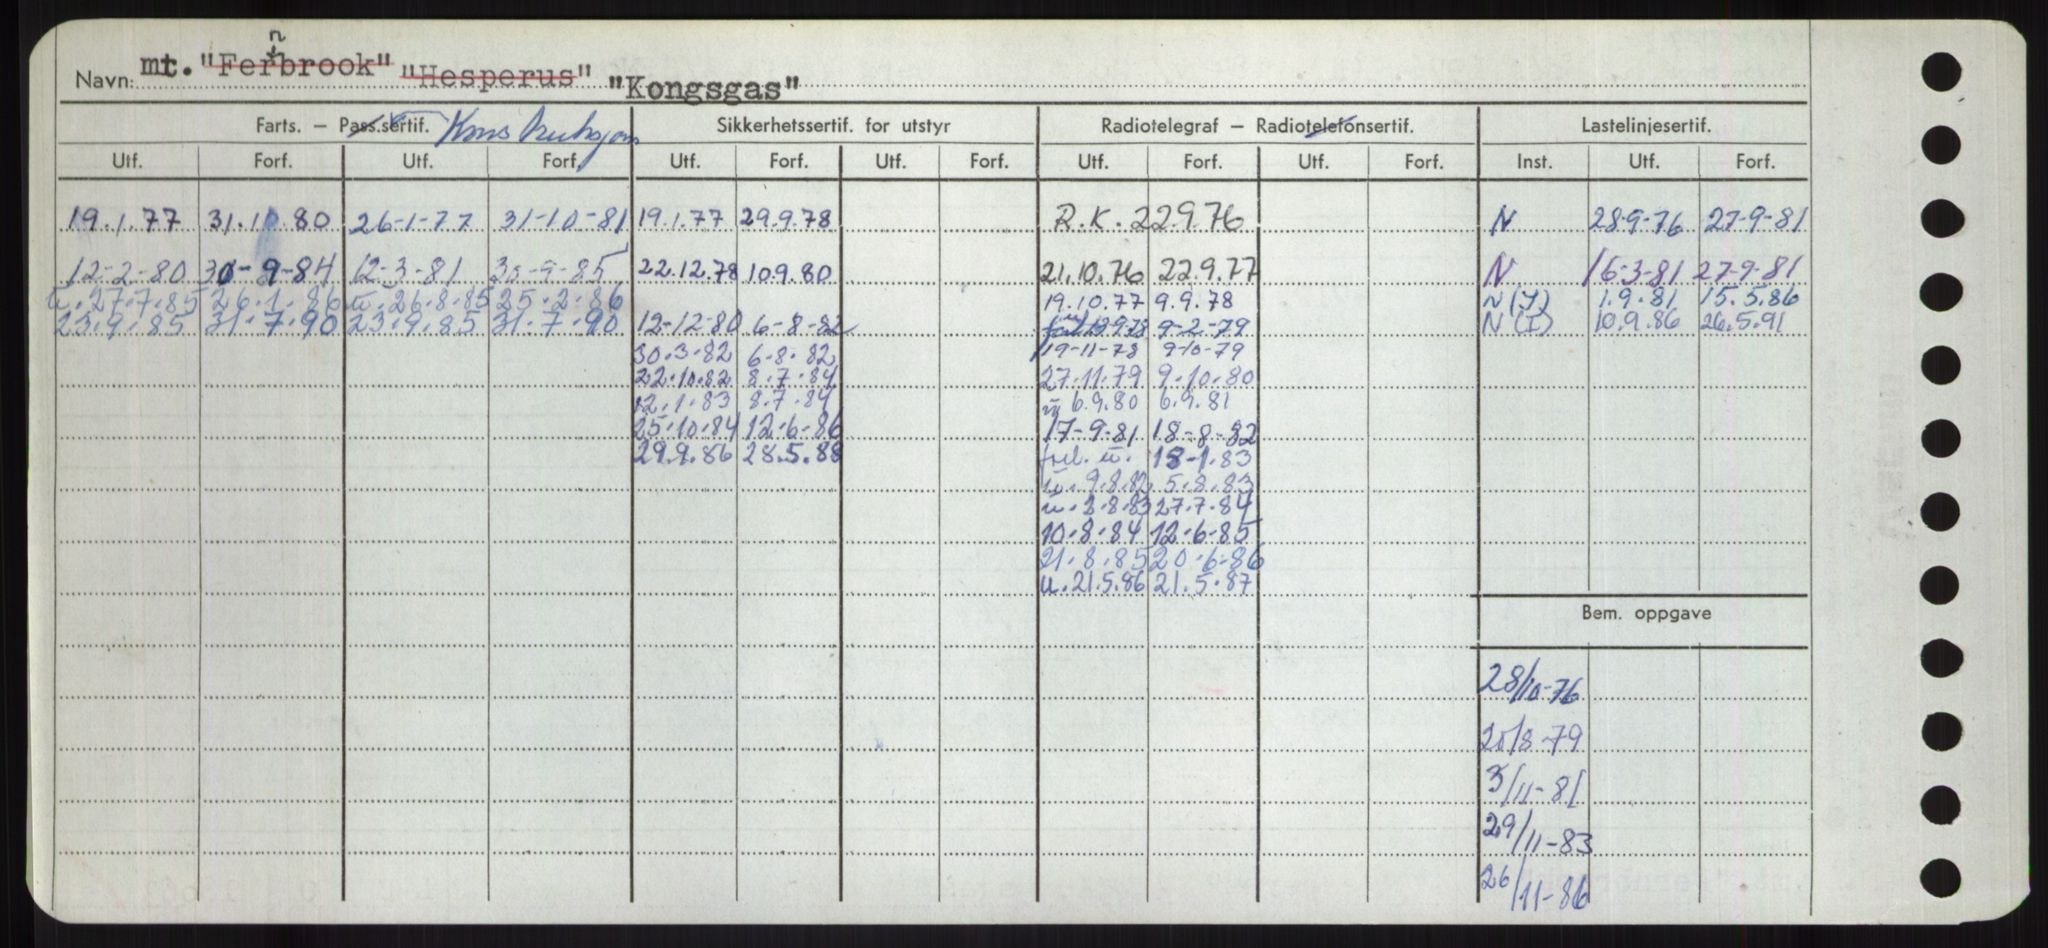 Navn: mt. "Fernbrook" "Hesperus" "Kongsgas"
Farts. – Pass.sertif. Konstruksjon Sikkerhetssertif. for utstyr Radiotelegraf – Radiotelefonsertif. Lastelinjesertif.
Utf. Forf. Utf. Forf. Utf. Forf. Utf. Forf. Utf. Forf. Utf. Forf. Inst. Utf. Forf.
19.1.77 31.10.80 26-1-77 31-10-81 19.1.77 29.9.78 R.K. 22.9.76 N 28-9-76 27-9-81
12-2-80 30-9-84 12-3-81 30-9-85 22.12.78 10.9.80 21.10.76 22.9.77 N 16-3-81 27-9-81
u. 27.7.85 26.1.86 u. 26.8.85 25.2.86 19.10.77 9.9.78 N(I) 1.9.81 15.5.86
23.9.85 31.7.90 23.9.85 31.7.90 12-12-80 6-8-82 9-2-79 N(I) 10.9.86 26.5.91
30.3.82 6.8.82 19-11-78 9-10-79
22.10.82 8.7.84 27.11.79 9.10.80
12.1.83 8.7.84 6.9.80 6.9.81
25.10.84 12.6.86 17-9-81 18-8-82
29.9.86 28.5.88 forl. u. 18-1.83
u. 9.8.82 5.8.83
u. 2.8.83 27.7.84
10.8.84 12.6.85
21.8.85 20.6.86
u. 21.5.86 21.5.87
Bem. oppgave
28/10-76
20/8-79
3/11-81
29/11-83
26/11-86